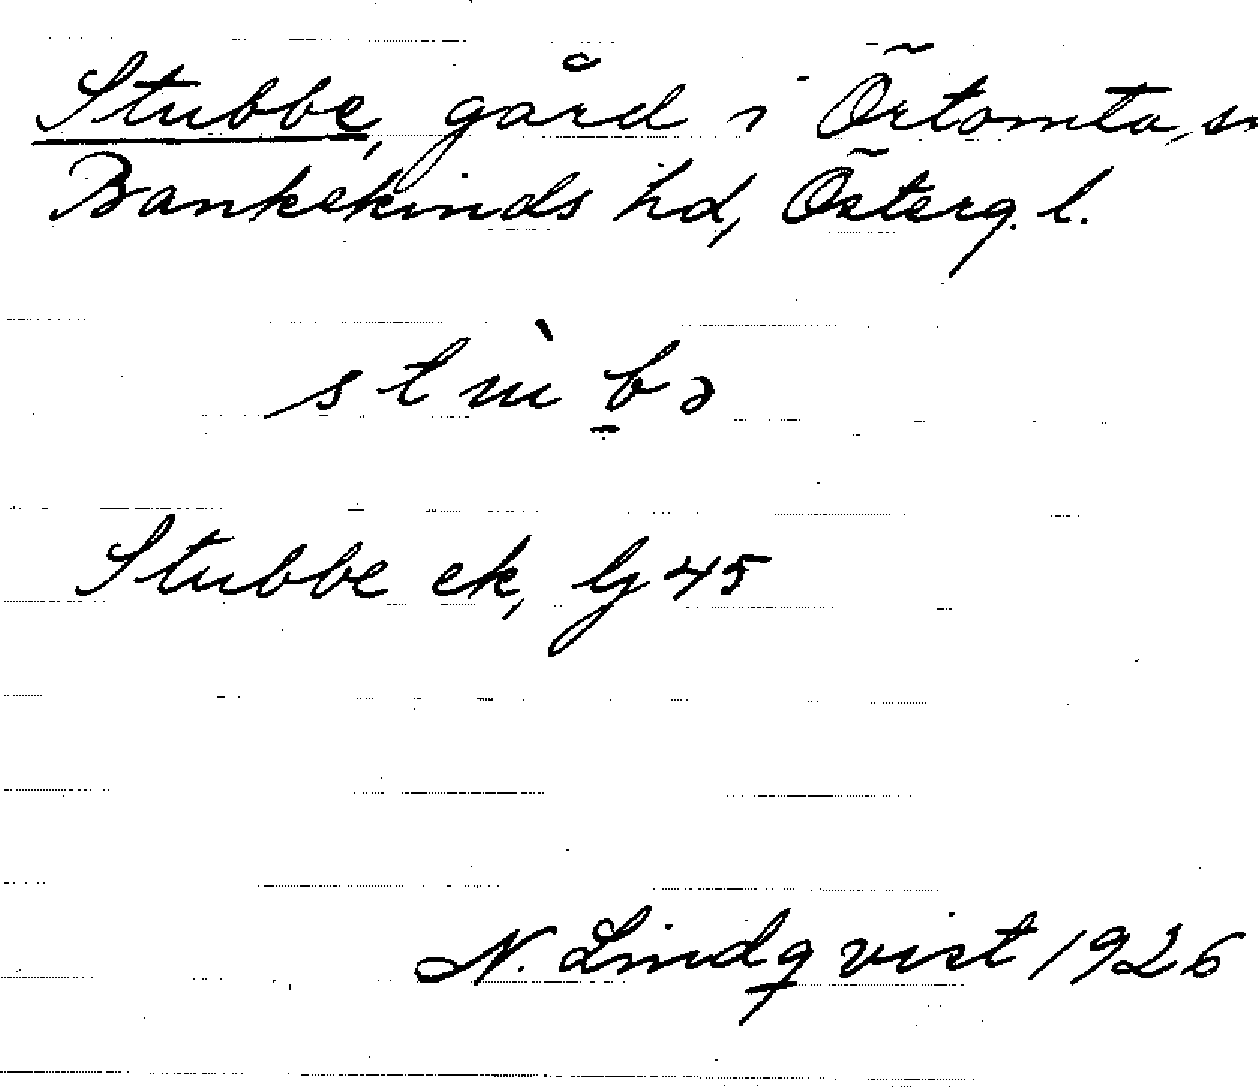 Stubbe, gård i Örtomta, sn
Bankekinds hd, Österg. l.
stùb̠ə
Stubbe ek, lj 45
N. Lindqvist 1926